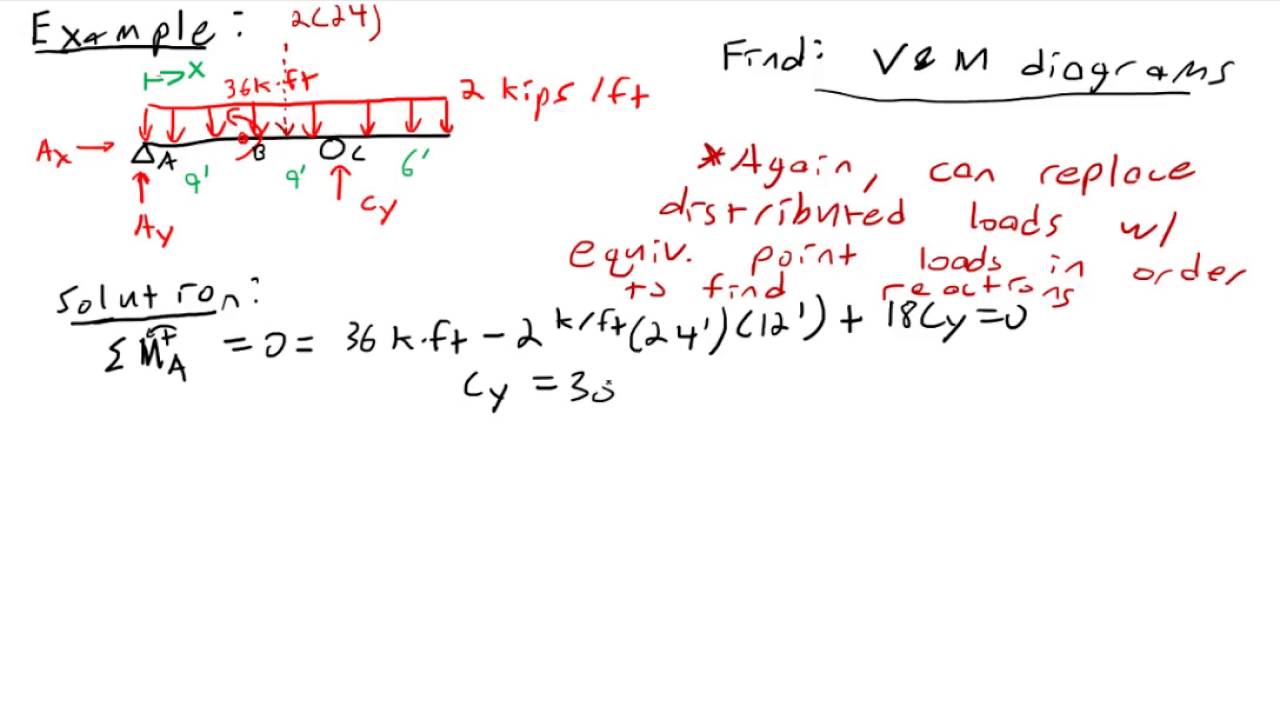 Example:
2(24)
Find: V & M diagrams
x
36k·ft
2 kips/ft
Ax
A
B
C
9'
9'
6'
Ay
Cy
*Again, can replace
distributed loads w/
equiv. point loads in order
to find reactions
Solution:
ΣM+A = 0 = 36 k·ft - 2 k/ft (24')(12') + 18Cy = 0
Cy = 30